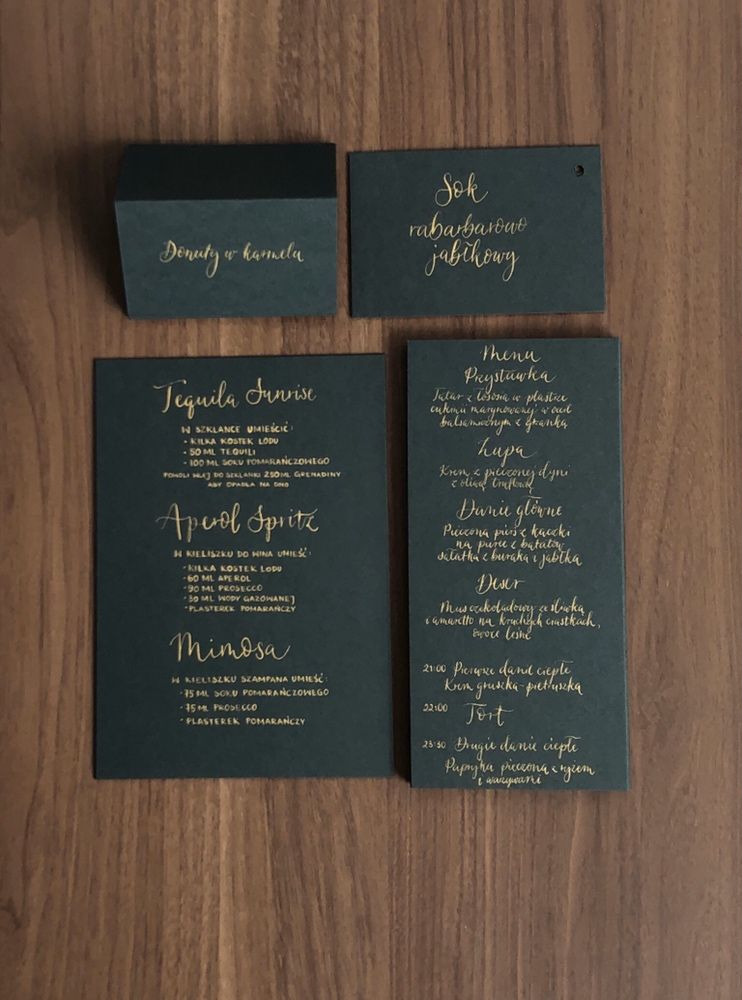 Donuty w karmelu
Sok
rabarbarowo
jabłkowy
Tequila Sunrise
W SZKLANCE UMIEŚCIĆ:
- KILKA KOSTEK LODU
- 50 ML TEQUILI
- 100 ML SOKU POMARAŃCZOWEGO
POWOLI WLEJ DO SZKLANKI 250ML GRENADINY
ABY OPADŁA NA DNO
Aperol Spritz
W KIELISZKU DO WINA UMIEŚĆ:
- KILKA KOSTEK LODU
- 60 ML APEROL
- 90 ML PROSECCO
- 30 ML WODY GAZOWANEJ
- PLASTEREK POMARAŃCZY
Mimosa
W KIELISZKU SZAMPANA UMIEŚĆ:
- 75 ML SOKU POMARAŃCZOWEGO
- 75 ML PROSECCO
- PLASTEREK POMARAŃCZY
Menu
Przystawka
Tatar z łososia w plastrze
cukinii marynowanej w occie
balsamicznym z grzanką
Zupa
Krem z pieczonej dyni
z oliwą truflową
Danie główne
Pieczona pierś z kaczki
na puree z batatów
sałatka z buraka i jabłka
Deser
Mus czekoladowy ze śliwką
i amaretto na kruchych ciastkach,
owoce leśne
21:00 Pierwsze danie ciepłe
Krem gruszka-pietruszka
22:00 Tort
23:30 Drugie danie ciepłe
Papryka pieczona z ryżem
i warzywami